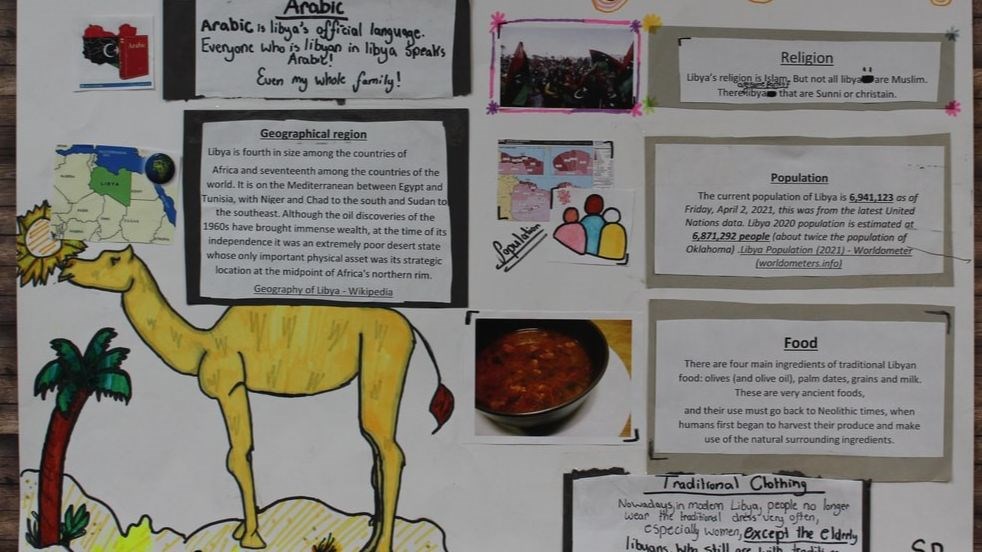 Arabic
Arabic is libya's official language.
Everyone who is libyan in libya speaks
Arabic!
Even my whole family!
Arabic
Geographical region
Libya is fourth in size among the countries of
Africa and seventeenth among the countries of the
world. It is on the Mediterranean between Egypt and
Tunisia, with Niger and Chad to the south and Sudan to
the southeast. Although the oil discoveries of the
1960s have brought immense wealth, at the time of its
independence it was an extremely poor desert state
whose only important physical asset was its strategic
location at the midpoint of Africa's northern rim.
Geography of Libya - Wikipedia
LIBYA
Religion
Libya's religion is Islam. But not all libya are Muslim.
There libya that are Sunni or christain.
Population
Population
The current population of Libya is 6,941,123 as of
Friday, April 2, 2021, this was from the latest United
Nations data. Libya 2020 population is estimated at
6,871,292 people (about twice the population of
Oklahoma) .Libya Population (2021) - Worldometer
(worldometers.info)
Food
There are four main ingredients of traditional Libyan
food: olives (and olive oil), palm dates, grains and milk.
These are very ancient foods,
and their use must go back to Neolithic times, when
humans first began to harvest their produce and make
use of the natural surrounding ingredients.
Traditional Clothing
Nowadays, in modern Libya, people no longer
wear the traditional dress very often,
especially women, except the elderly
libyans who still are with